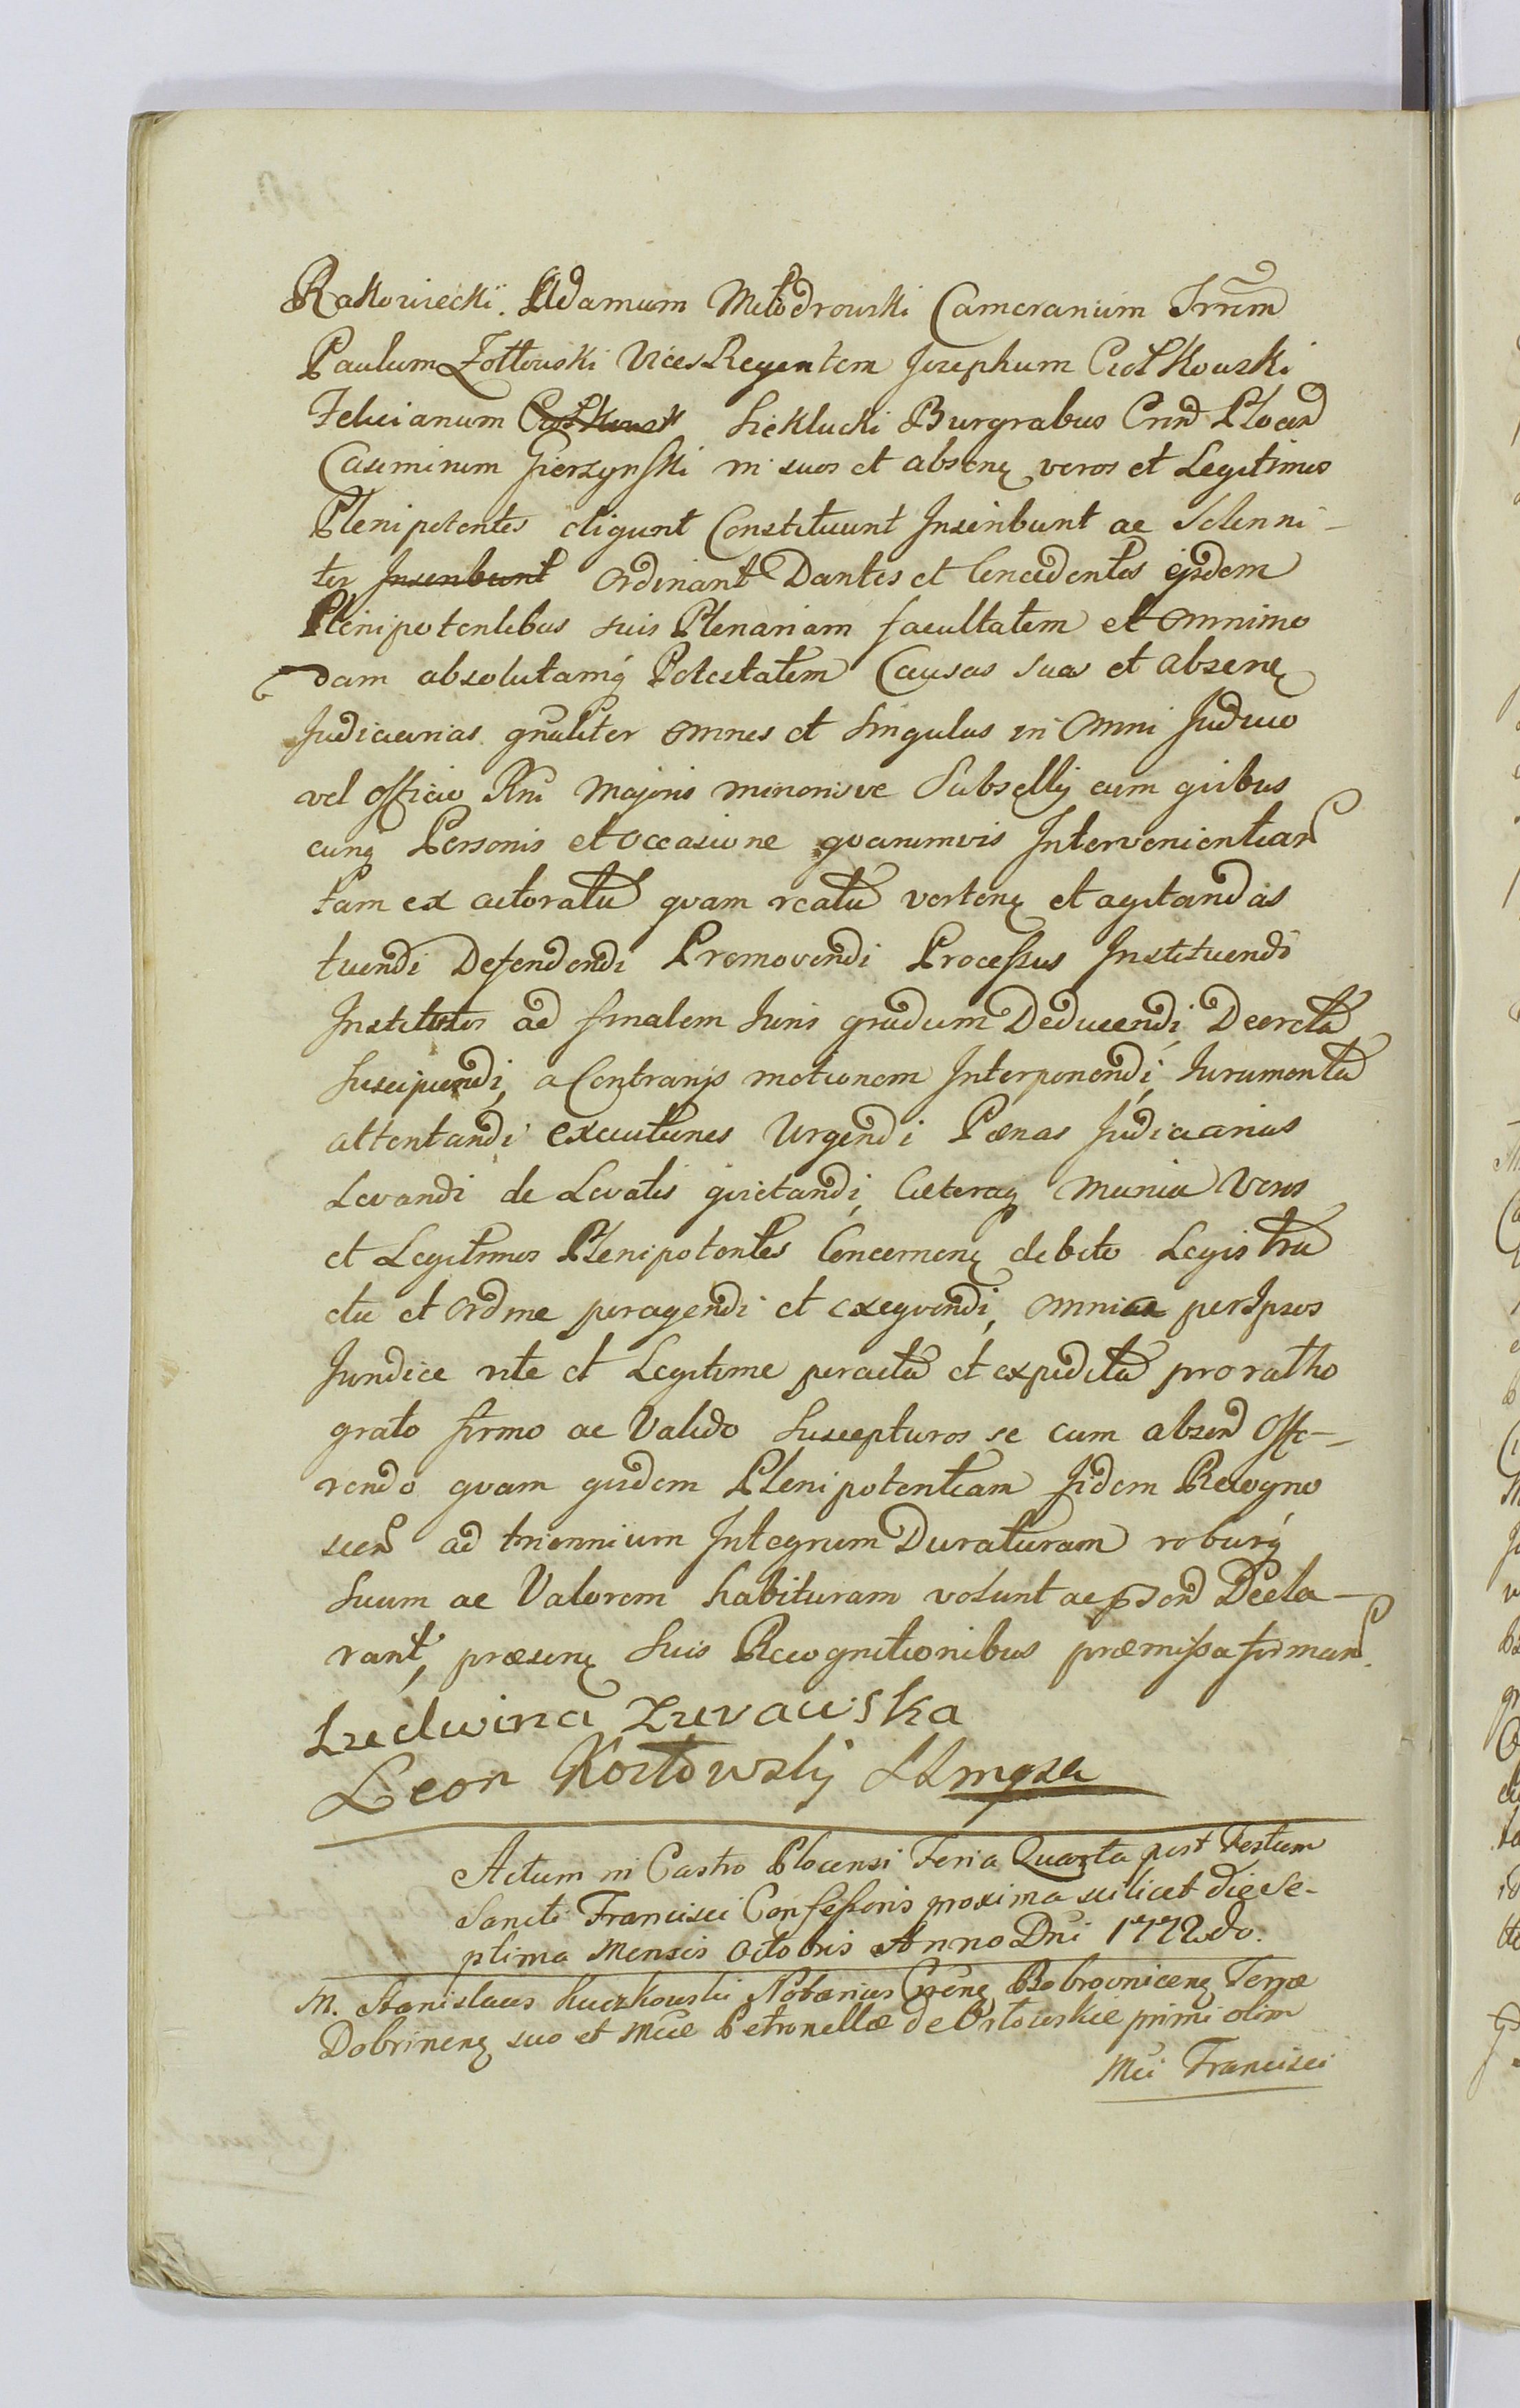 Rakowiecki. Adamum Młodrowski Cameranium Trrum
Paulum Zołtowski Vices Regentem Josephum Ciołkowski
Felicianum Ciołkowsk Sieklucki Burgrabios Crnd Plocen
Casimirum Gierzynski in suos et absenq veros et Legitimos
Plenipotentes eligunt Constituunt Inscribunt ac Solenni-
ter Inscribunt Ordinant Dantes et Concedentes ejsdem
Plenipotentibus suis Plenariam facultatem et Omnimo
dam absolutamq Potestatem Causas suas et absenq
Judiciarias gnaliter omnes et singulas in Omni Judicio
vel officio Rni Majoris minorisve Subsellij cum quibus
cunq Personis et occasione quarumvis Intervenientiar
tam ex actoratu quam reatu vertenq et agitandas
tuendi Defendendi Promovendi Processus Instituendi
Institutos ad finalem Juris gradum Deducendi, Decreta
Suscipiendi, a Contrarijs motionem Interponendi, Juramenta
attentandi executiones Urgendi Pœnas Judiciarias
Levandi de Levatis quietandi, Cæteraq Munia Veros
et Legitimos Plenipotentes Concernenq debito Legis tra
ctu et ordine peragendi et exequendi, omnia per Ipsos
Juridice rite et Legitime peracta et expedita pro ratho
grato firmo ac Valido Suscepturos se cum absen Offe-
rendo quam quidem Plenipotentiam Jidem Recogno
scen ad triennium Integrum Duraturam roburq
Suum ac Valorem habituram volunt ac psen Decla-
rant, præsenq Suis Recognitionibus præmissa firman.
Ludwina Zurawska
Leon Kozłowskij
Actum in Castro Plocensi Feria Quarta post Festum
Sancti Francisci Confessoris proxima scilicet die Se-
ptima Mensis Octobris Anno Dni 1772do.
M. Stanislaus Kuczkowski Notarius Crenq Bobrovnicenq Terræ
Dobrinenq suo et Mcæ Petronellæ de Orłowskie primi olim
Mci Francisci